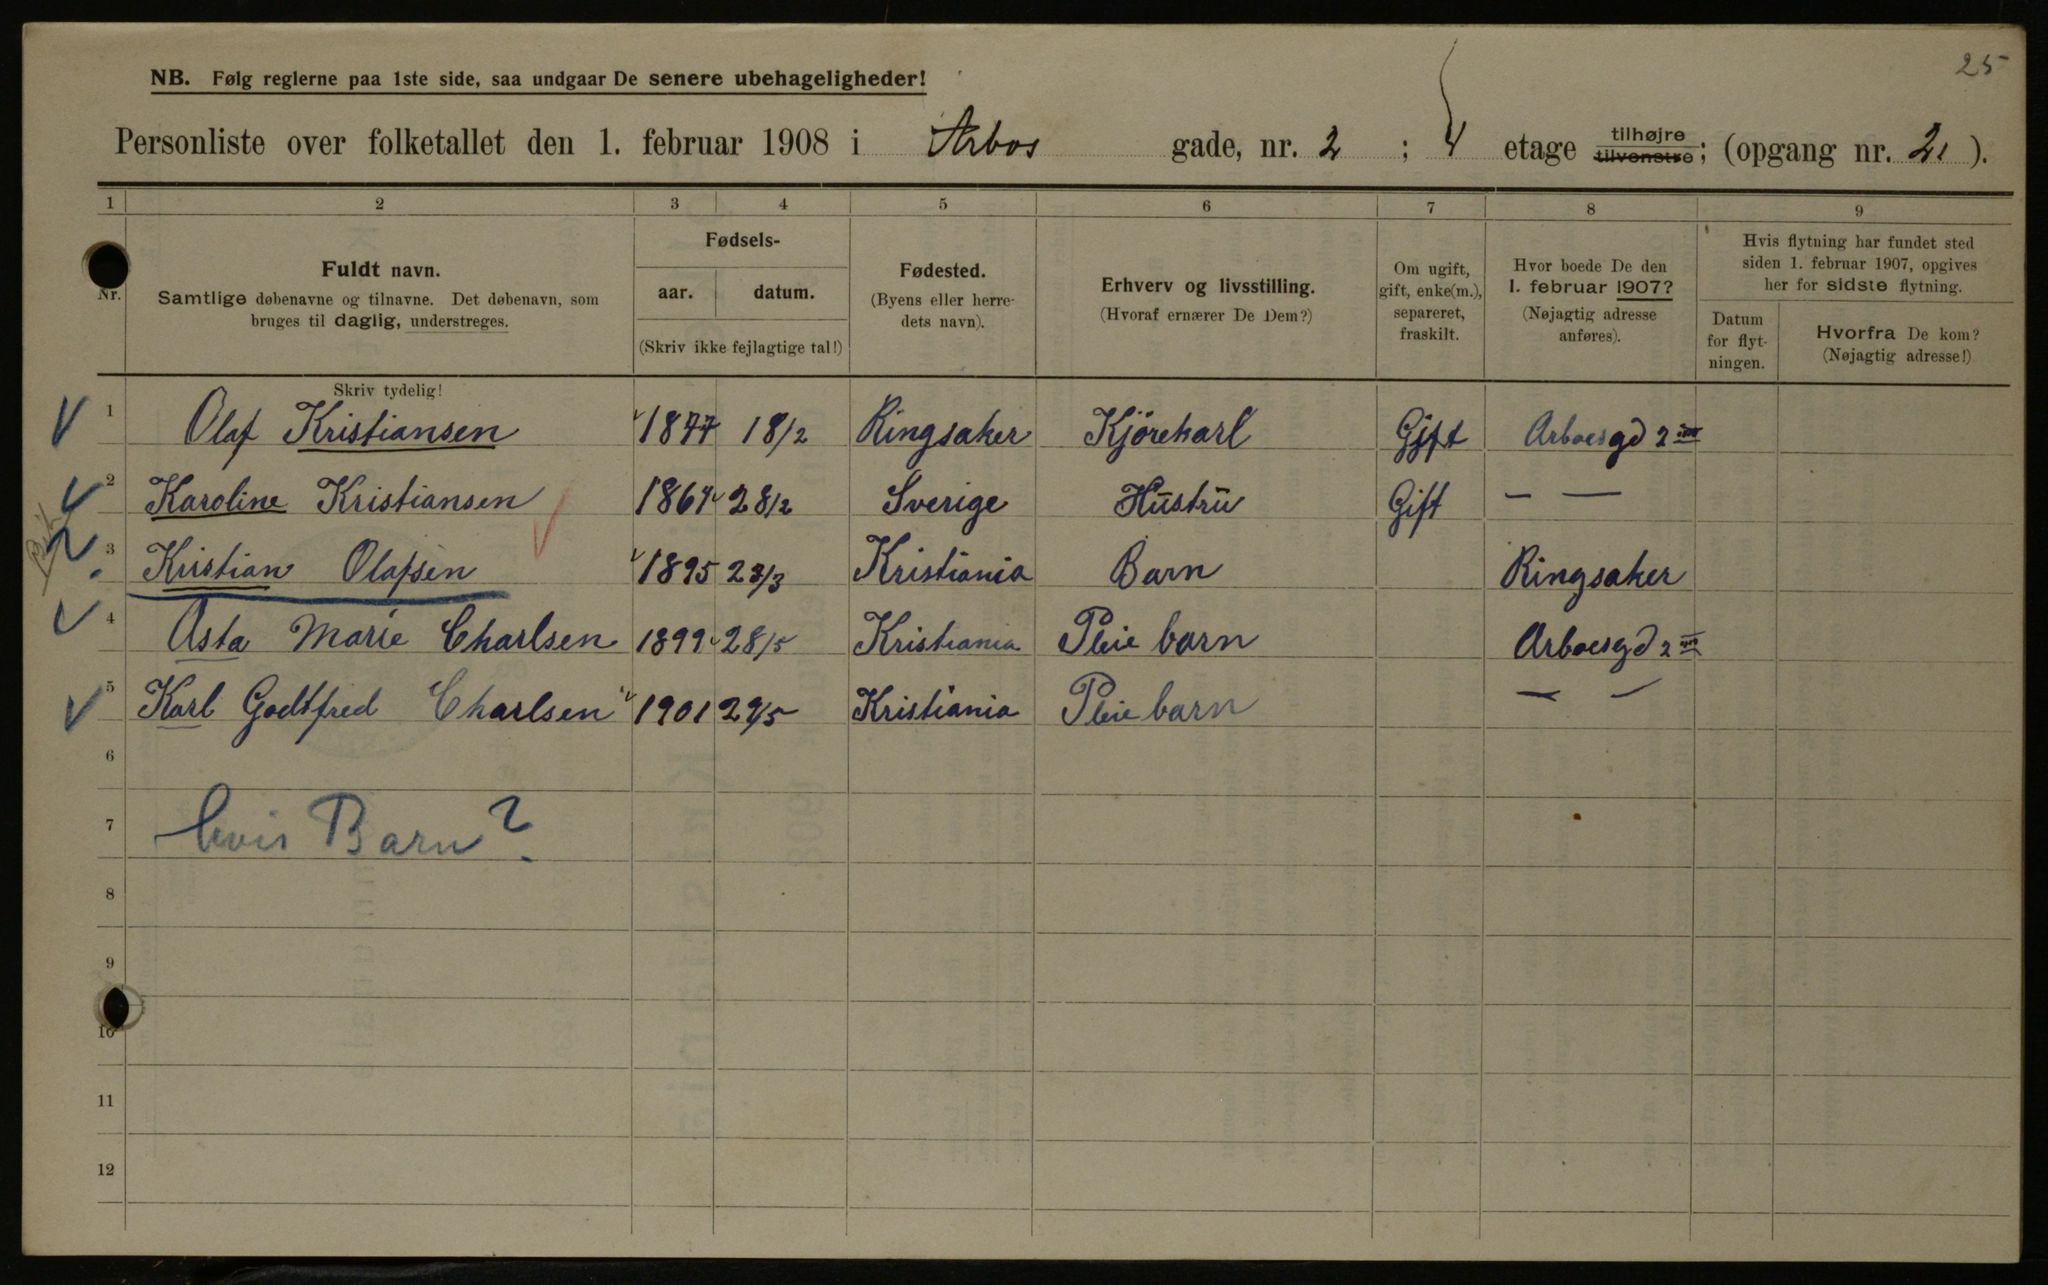 25
NB. Følg reglerne paa 1ste side, saa undgaar De senere ubehageligheder!
Personliste over folketallet den 1. februar 1908 i Arbos gade, nr. 2 ; 4 etage tilhøjre tilvenstre; (opgang nr. 2 ).
1 2 3 4 5 6 7 8 9
Nr.
Fuldt navn.
Samtlige døbenavne og tilnavne. Det døbenavn, som
bruges til daglig, understreges.
Skriv tydelig!
Fødsels-
aar. datum.
(Skriv ikke fejlagtige tal!)
Fødested.
(Byens eller herre-
dets navn).
Erhverv og livsstilling.
(Hvoraf ernærer De Dem?)
Om ugift,
gift, enke(m.),
separeret,
fraskilt.
Hvor boede De den
1. februar 1907?
(Nøjagtig adresse
anføres).
Hvis flytning har fundet sted
siden 1. februar 1907, opgives
her for sidste flytning.
Datum
for flyt-
ningen.
Hvorfra De kom?
(Nøjagtig adresse!)
1 Olaf Kristiansen 1877 18/2 Ringsaker Kjörekarl Gift Arboesgd 2
2 Karoline Kristiansen 1864 28/2 Sverige Hustru Gift — —
3 Kristian Olafsen 1895 23/3 Kristiania Barn Ringsaker
4 Asta Marie Charlsen 1899 28/5 Kristiania Pleie barn Arboesgd 2
5 Karl Godtfred Charlsen 1901 29/5 Kristiania Pleie barn — —
6
7 hvis Barn?
8
9
10
11
12